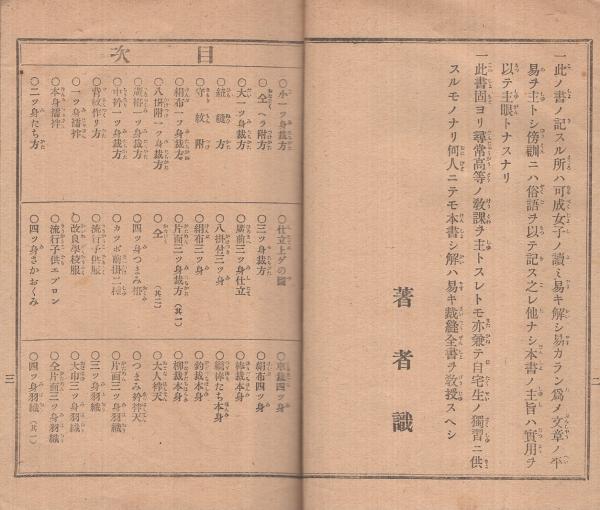 一此ノ書ノ記スル所ハ可成女子ノ讀ミ易キ解シ易カラン爲メ文章ノ平
易ヲ主トシ傍訓ニハ俗語ヲ以テ記ス之レ他ナシ本書ノ主旨ハ實用ヲ
以テ主眼トナスナリ
一此書固ヨリ尋常高等ノ教課ヲ主トスレトモ亦兼テ自宅生ノ獨習ニ供
スルモノナリ何人ニテモ本書シ解ハ易キ裁縫全書ヲ教授スヘシ
著者識
二
目次
○小一ツ身裁方
○仝ヘラ附方
○大一ツ身裁方
○紐縫方
○守紋附
○絹布一ツ身裁方
○八掛附一ツ身裁方
○中衿一ツ身裁方
○背紋作リ方
○一ツ身襦袢
○本身襦袢
○二ツ身たち方
○仕立上ゲの圖
○三ツ身裁方
○廣前三ツ身仕立
○八掛付三ツ身
○絹布三ツ身
○片面三ツ身裁方(其一)
○仝(其二)
○四ツ身つまみ裕
○カツポ前掛二種
○流行子供服
○改良學校服
○流行子供エプロン
○四ツ身さかおくみ
○絹布四ツ身
○棒裁本身
○鈎裁本身
○柳裁本身
○大人袢天
○つまみ袢天
○片面三ツ身羽織
○三ツ身羽織
○大巾三ツ身羽織
○仝片面三ツ身羽織
○四ツ身羽織(其一)
三